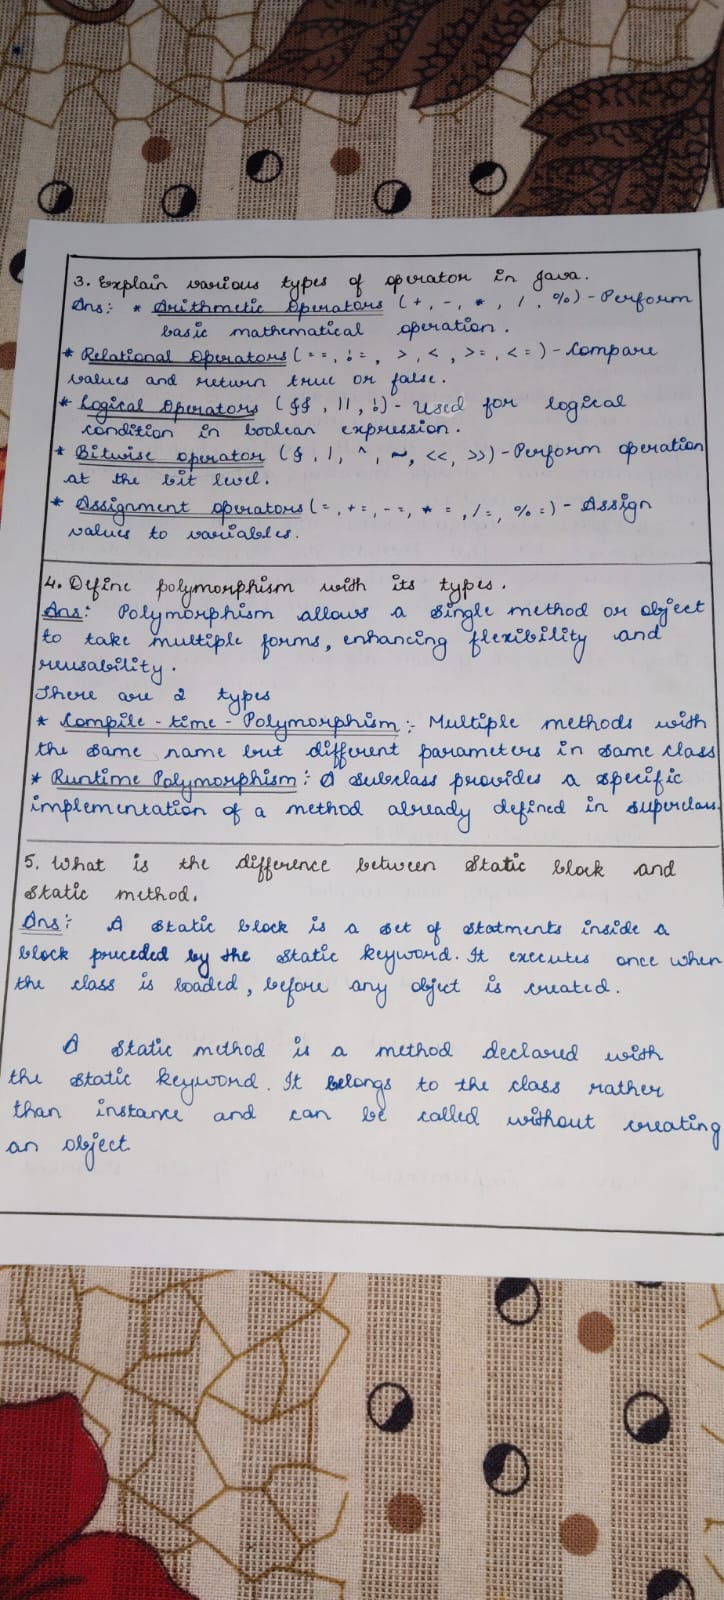 3. Explain various types of operator in java.
Ans: * Arithmetic Operators (+, -, *, /, %) - Perform
basic mathematical operation.
* Relational Operators (==, !=, >, <, >=, <=) - Compare
values and return true or false.
* Logical Operators (&&, ||, !) - Used for logical
condition in boolean expression.
* Bitwise operator (&, |, ^, ~, <<, >>) - Perform operation
at the bit level.
* Assignment operators (=, +=, -=, *=, /=, %=) - Assign
values to variables.
4. Define polymorphism with its types.
Ans: Polymorphism allows a single method or object
to take multiple forms, enhancing flexibility and
reusability.
There are 2 types
* Compile-time-Polymorphism:- Multiple methods with
the same name but different parameters in same class
* Runtime Polymorphism: A subclass provides a specific
implementation of a method already defined in superclass.
5. What is the difference between static block and
static method.
Ans: A static block is a set of statments inside a
block preceded by the static keyword. It executes once when
the class is loaded, before any object is created.
A static method is a method declared with
the static keyword. It belongs to the class rather
than instance and can be called without creating
an object.